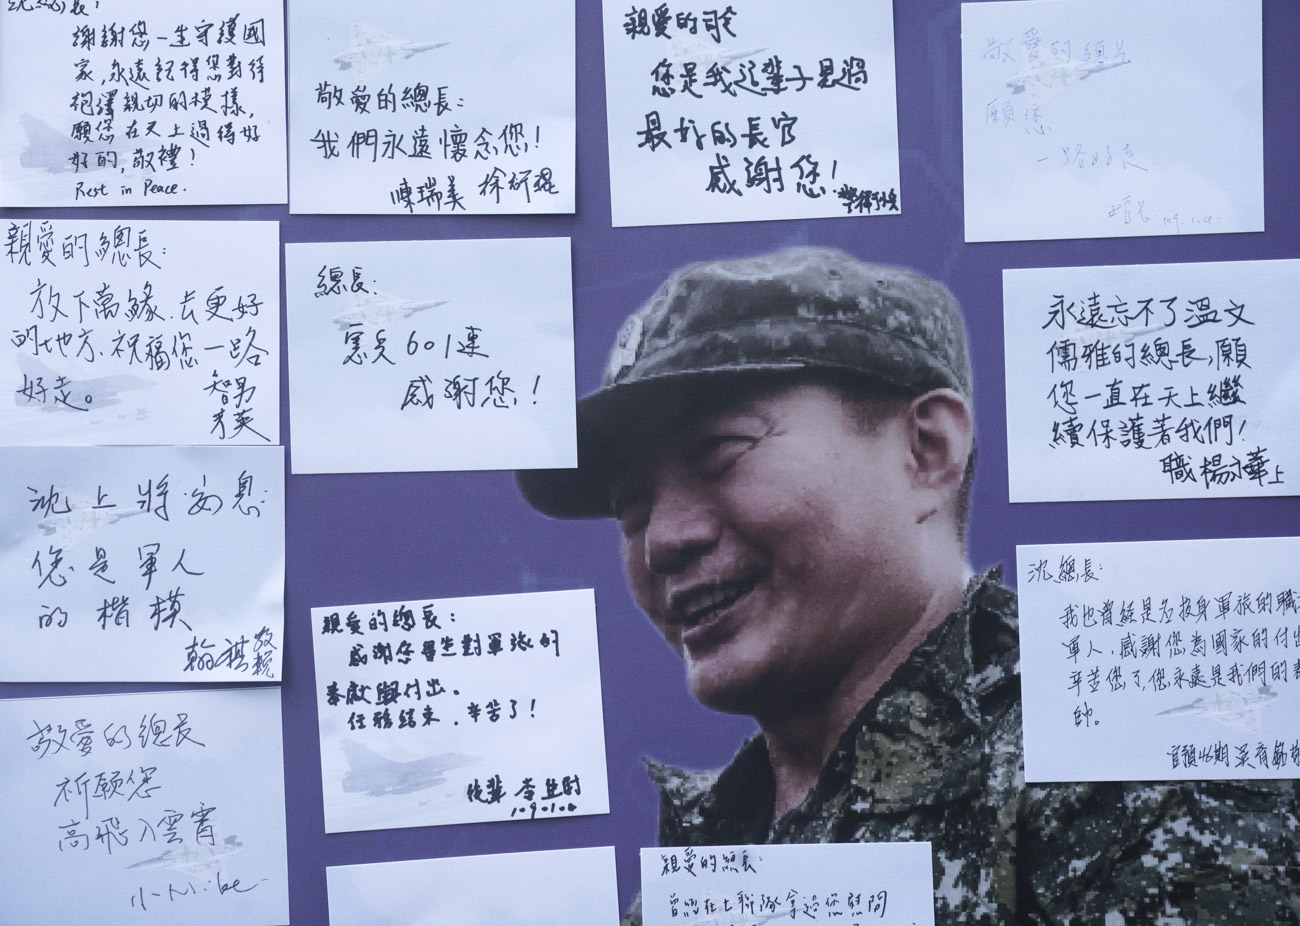 沈總長：
謝謝您一生守護國
家，永遠記得您對待
袍澤親切的模樣，
願您在天上過得好
好的，敬禮！
Rest in Peace.
敬愛的總長：
我們永遠懷念您！
陳瑞美 徐研琨
親愛的司令
您是我這輩子見過
最好的長官
感謝您！
敬愛的總長
願您
一路好走
109.1.4.
親愛的總長：
放下萬緣、去更好
的地方、祝福您一路
好走。
總長：
憲兵601連
感謝您！
永遠忘不了溫文
儒雅的總長，願
您一直在天上繼
續保護著我們！
職 楊 華上
沈上將安息：
您是軍人
的楷模
敬
沈總長：
我也曾經是名投身軍旅的職
軍人，感謝您為國家的付出
辛苦您了，您永遠是我們的
帥。
46期
親愛的總長：
感謝您畢生對軍旅的
奉獻與付出。
任務結束，辛苦了！
後輩 李
1090104
敬愛的總長
祈願您
高飛入雲霄
親愛的總長：